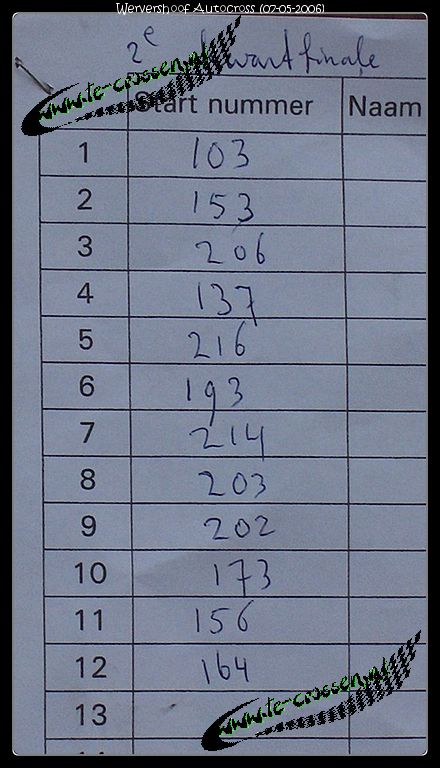 Wervershoof Autocross (07-05-2006)
2e kwart finale
www.te-crossen.nl
Start nummer Naam
1 103
2 153
3 206
4 137
5 216
6 193
7 214
8 203
9 202
10 173
11 156
12 164
13
www.te-crossen.nl